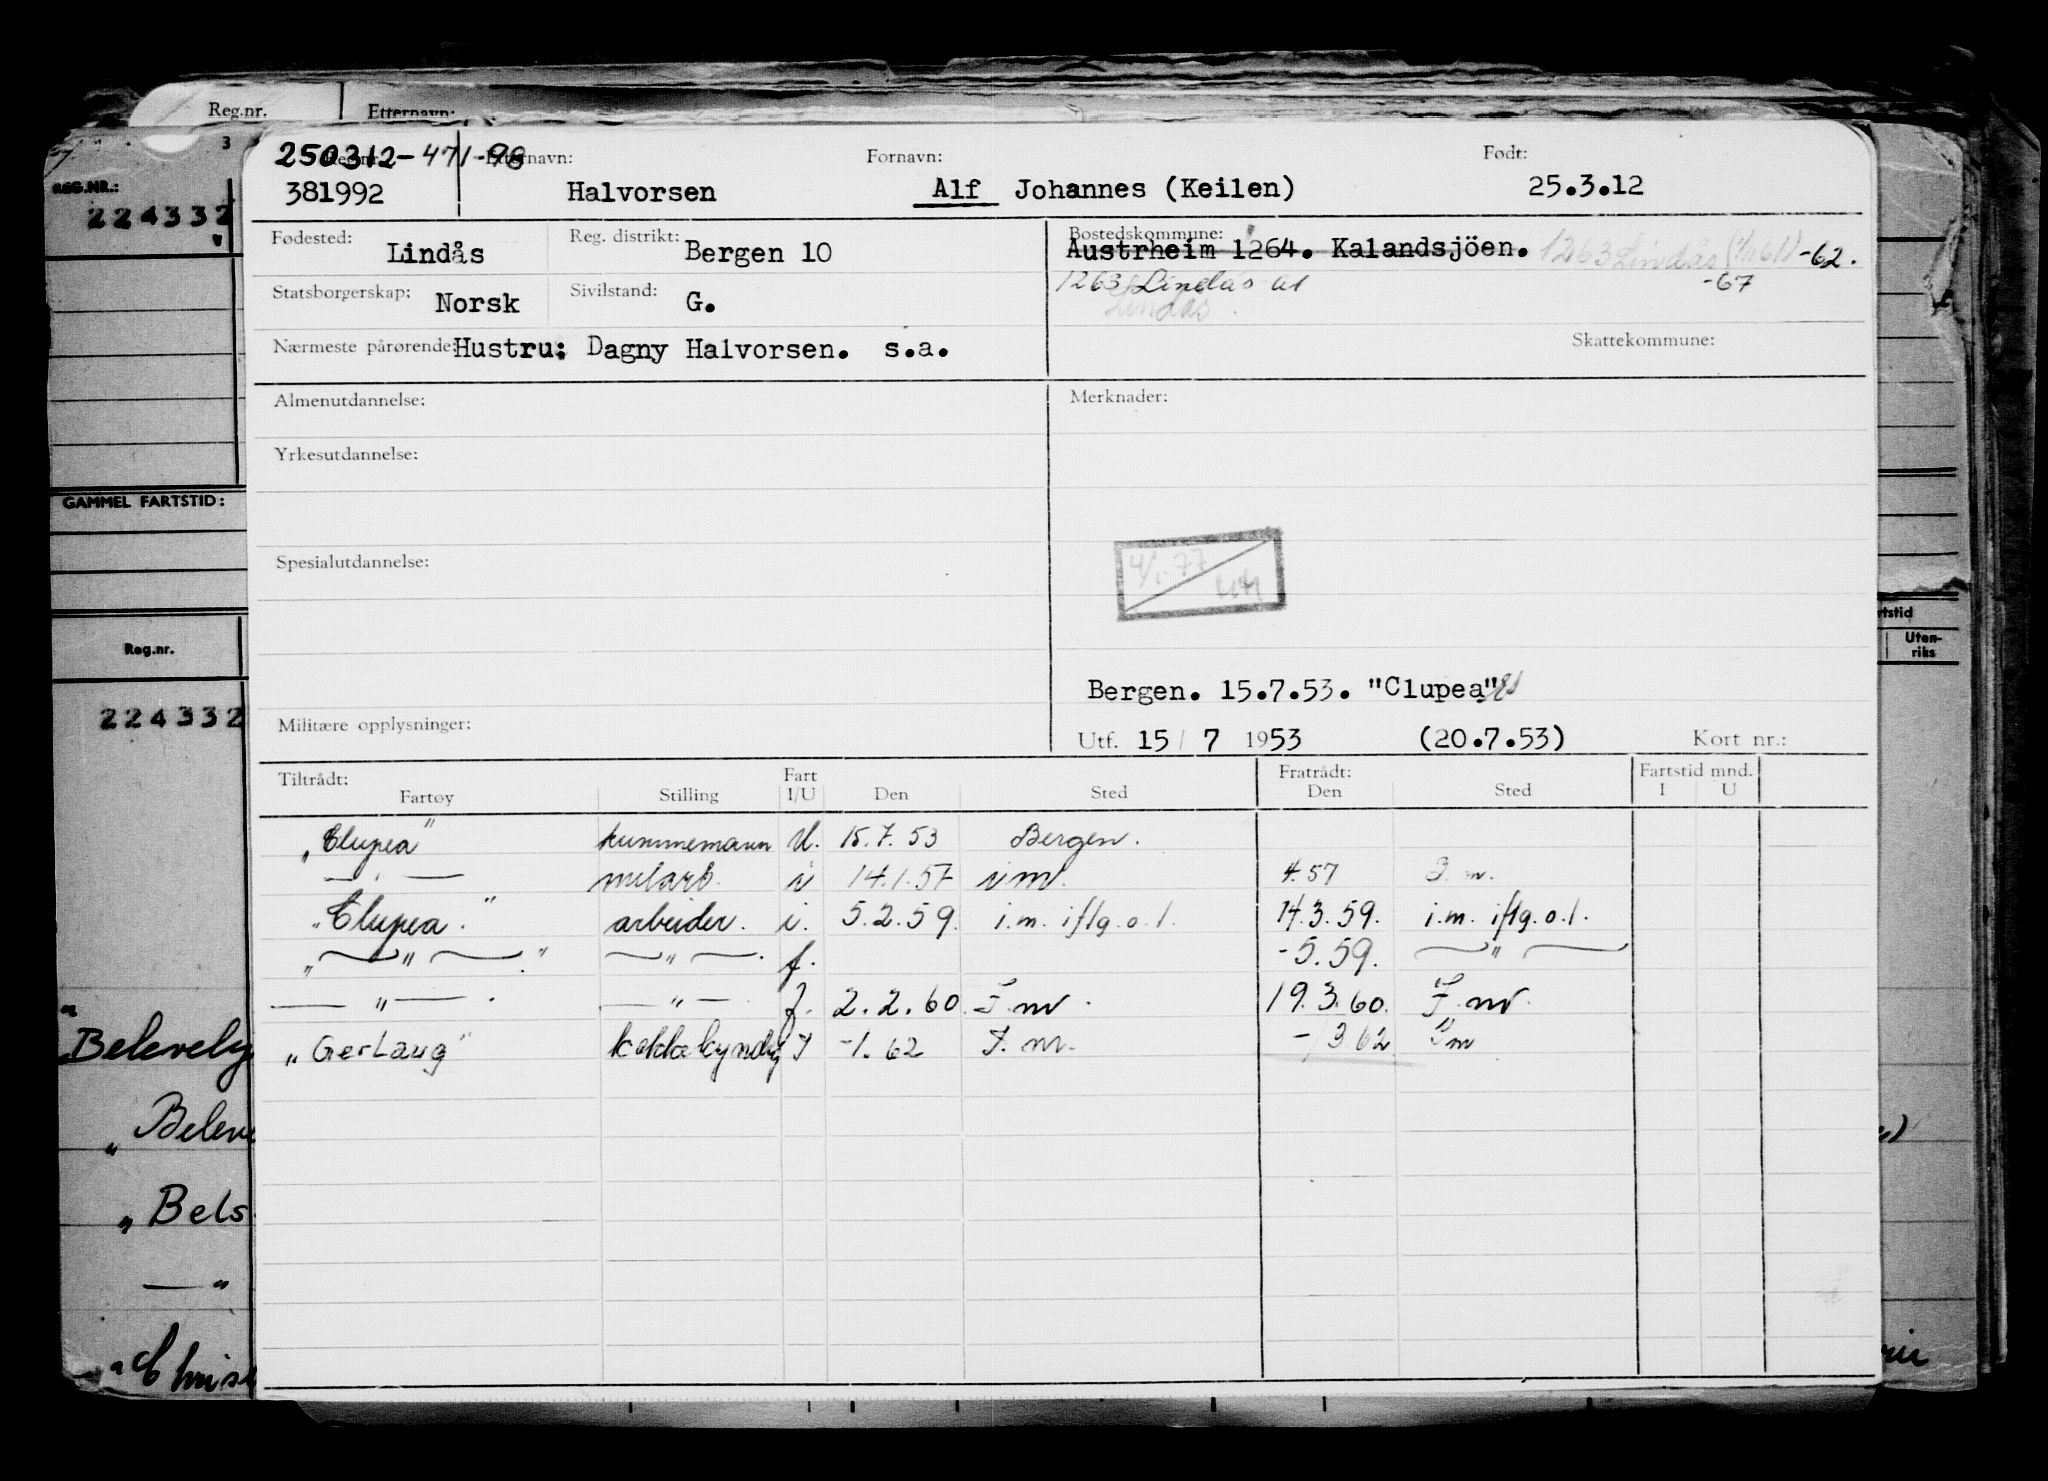 Reg.nr. Etternavn:
3
REG.NR.:
224332
GAMMEL FARTSTID:
Reg.nr.
224332
"Belevely
"Beleve
"Bels
— "
"Chris
rtstid
Uten-
riks
250312-471-98
Etternavn: Fornavn: Født:
381992 Halvorsen Alf Johannes (Keilen) 25.3.12
Fødested: Lindås Reg. distrikt: Bergen 10 Bostedskommune: Austrheim 1264. Kalandsjöen. 1263 Lindås (1/1 61) -62.
1263 Lindås -67
Lindås.
Statsborgerskap: Norsk Sivilstand: G.
Nærmeste pårørende: Hustru: Dagny Halvorsen. s.a. Skattekommune:
Almenutdannelse: Merknader:
Yrkesutdannelse:
Spesialutdannelse:
4/1-77
Bergen. 15.7.53. "Clupea"
Militære opplysninger: Utf. 15/ 7 1953 (20.7.53) Kort nr.:
Tiltrådt: Fart Fratrådt: Fartstid mnd.
Fartøy Stilling I/U Den Sted Den Sted I U
"Clupea" kummemann U. 15.7.53 Bergen.
— " — milarb. i 14.1.57 i m. 4.57 I. m.
"Clupea." arbeider. i. 5.2.59. i.m. iflg.o.l. 14.3.59. i.m. iflg.o.l.
" — " — " — " — f. -5.59. — " —
— " — . — " — f. 2.2.60. I. m. 19.3.60. I. m.
"Gerlaug" kokkekyndig I -1.62 I. m. -/3 62 I m